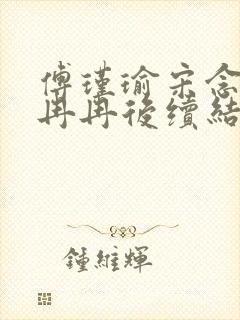 傅瑾瑜宋念
冉冉後續結
鍾維輝